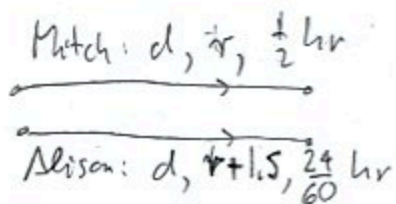 Mitch: d, r, 1/2 hr
Alison: d, r+1.5, 24/60 hr